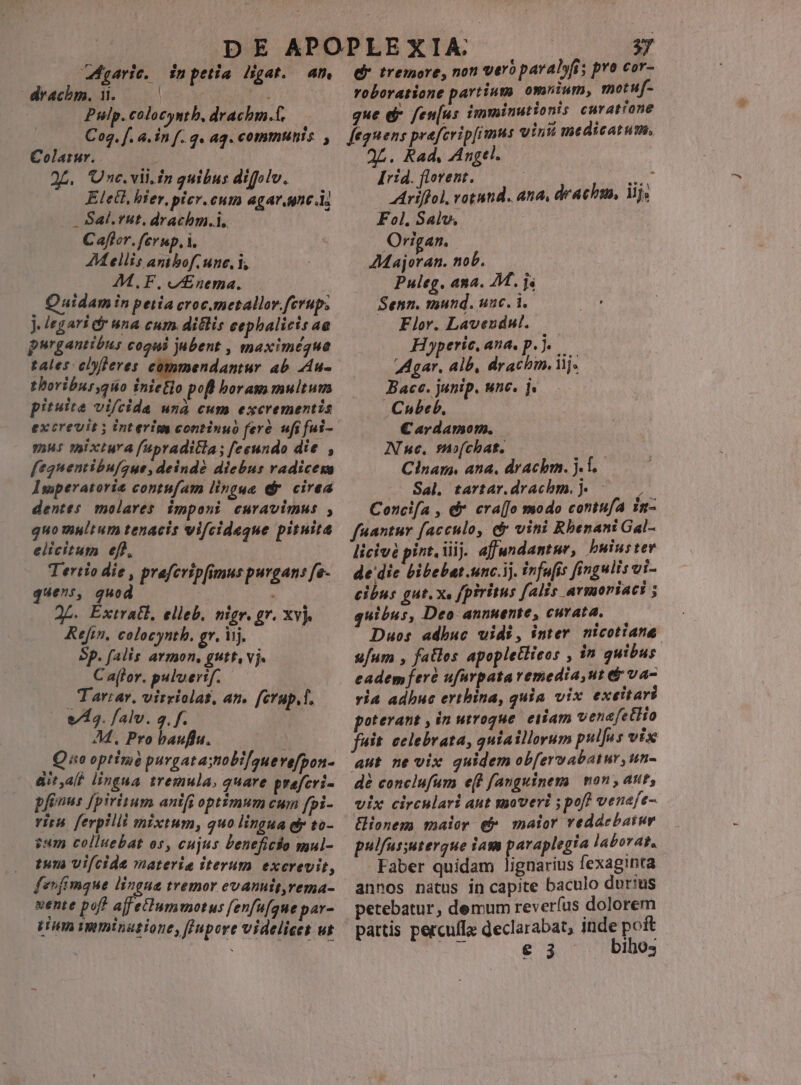 DE APOPLEXIA. 37
Agaric. in petia ligat. an,
drachm. ii.
Pulp. colocynth. drachm.ſ.
Coq. ſ. a. in ſ. q. aq. communis ,
Colatur.
℞. Unc. vii. in quibus diſſolv.
Elect. hier. picr. cum agar. unc. iſ
Sal. rut. drachm. i.
Caſtor. ſcrup. i.
Mellis anthoſ. unc. i,
M. F. Ænema.
Quidam in petia croc. metallor. ſcrup.
j. legari & una cum dictis cephalicis ac
purgantibus coqui jubent , maximéque
tales clyſteres commendantur ab Au-
thoribus, quo iniecto poſt horam multum
pituitæ viſcidæ unà cum excrementis
excrevit ; interim continuò ferè uſi fui-
mus mixtura ſupradicta ; ſecundo die ,
ſequentibuſque, deindè diebus radicem
Imperatoriæ contuſam linguæ & circa
dentes molares imponi curavimus ,
quo multum tenacis viſcidæque pituitæ
elicitum eſt.
Tertio die , præſcripſimus purgans ſe-
quens, quod
℞. Extract. elleb. nigr. gr. xvj.
Reſin. colocynth. gr. iij.
Sp. ſalis armon. gutt, vj.
Caſtor. pulveriſ.
Tartar. vitriolat. an. ſcrup. ſ.
Aq. ſalv. q. ſ.
M. Pro hauſtu.
Quo optimè purgata; nobiſque reſpon-
dit, aſt lingua tremula, quare præſcri-
pſimus ſpiritum aniſi optimum cum ſpi-
ritu ſerpilli mixtum, quo lingua & to-
tum colluebat os, cujus beneficio mul-
tum viſcidæ materiæ iterum excrevit,
ſenſimque linguæ tremor evanuit, rema-
nente poſt affectum motus ſenſuſque par-
tium imminutione, ſtupore videlicet ut
& tremore, non verò paralyſi ; pro cor-
roboratione partium omnium, motuſ-
que & ſenſus imminutionis curatione
ſequens præſcripſimus vinū medicatum.
℞. Rad. Angel.
Irid. florent.
Ariſtol. rotund. ana, drachm. iij.
Fol. Salv.
Origan.
Majoran. nob.
Puleg. ana. M. j.
Senn. mund. unc. i.
Flor. Lavendul.
Hyperic. ana. p. j.
Agar. alb. drachm. iij.
Bacc. junip. unc. j.
Cubeb.
Cardamom.
Nuc. moſchat.
Cinam. ana. drachm. j. ſ.
Sal. tartar. drachm. j.
Conciſa , & craſſo modo contuſa in-
ſuantur ſacculo, & vini Rhenani Gal-
licivè pint. iiij. affundantur, huius ter
de die bibebat. unc. ij. infuſis ſingulis vi-
cibus gut. x. ſpiritus ſalis armoniaci ;
quibus, Deo annuente, curata.
Duos adhuc vidi, inter nicotianæ
uſum , factos apoplecticos , in quibus
eadem ferè uſurpata remedia, ut & va-
ria adhuc errhina, quia vix excitari
poterant , in utroque etiam venæſectio
fuit celebrata, quia illorum pulſus vix
aut ne vix quidem obſervabatur, un-
dè concluſum eſt ſanguinem non , aut,
vix circulari aut moveri ; poſt venæſe-
ctionem maior & maior reddebatur
pulſus; uterque iam paraplegia laborat.
Faber quidam lignarius ſexaginta
annos natus in capite baculo durius
petebatur, demum reverſus dolorem
partis percuſſæ declarabat, inde poſt
e 3 bihos